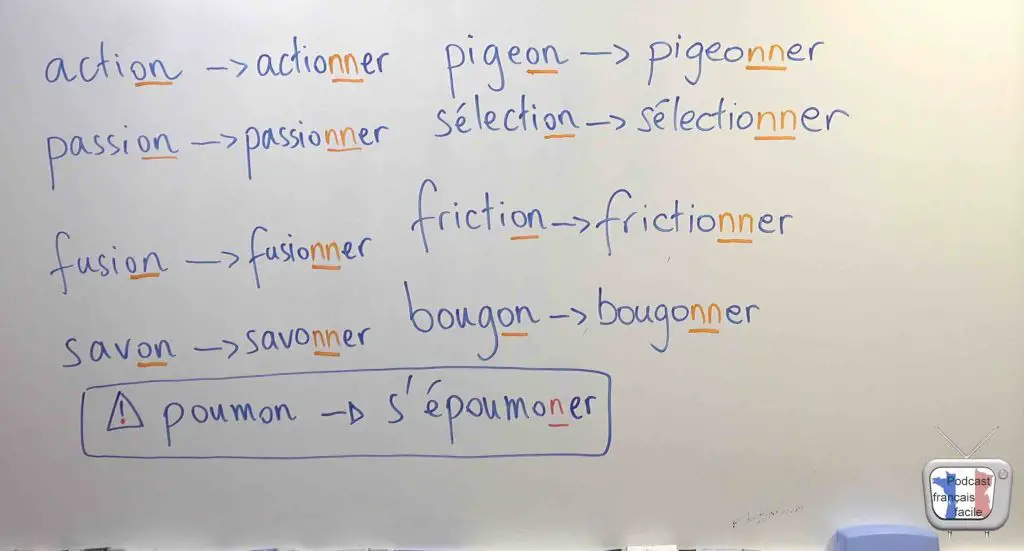 action → actionner
passion → passionner
fusion → fusionner
savon → savonner
pigeon → pigeonner
sélection → sélectionner
friction → frictionner
bougon → bougonner
⚠ poumon → s'époumoner
Podcast
français
facile